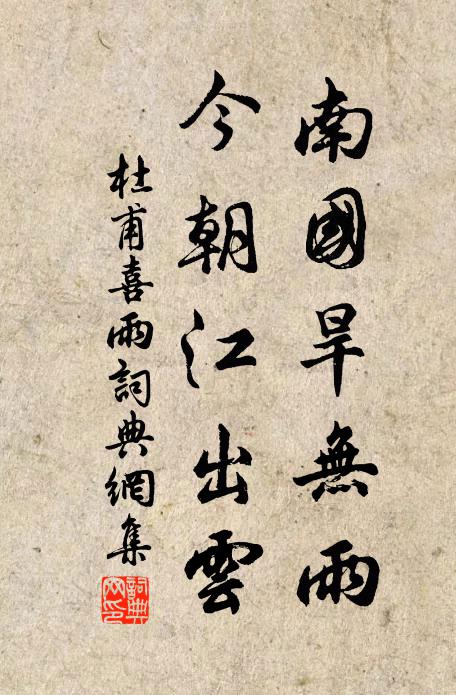 南國旱無雨
今朝江出雲
杜甫喜雨詞典網集
詞典網印